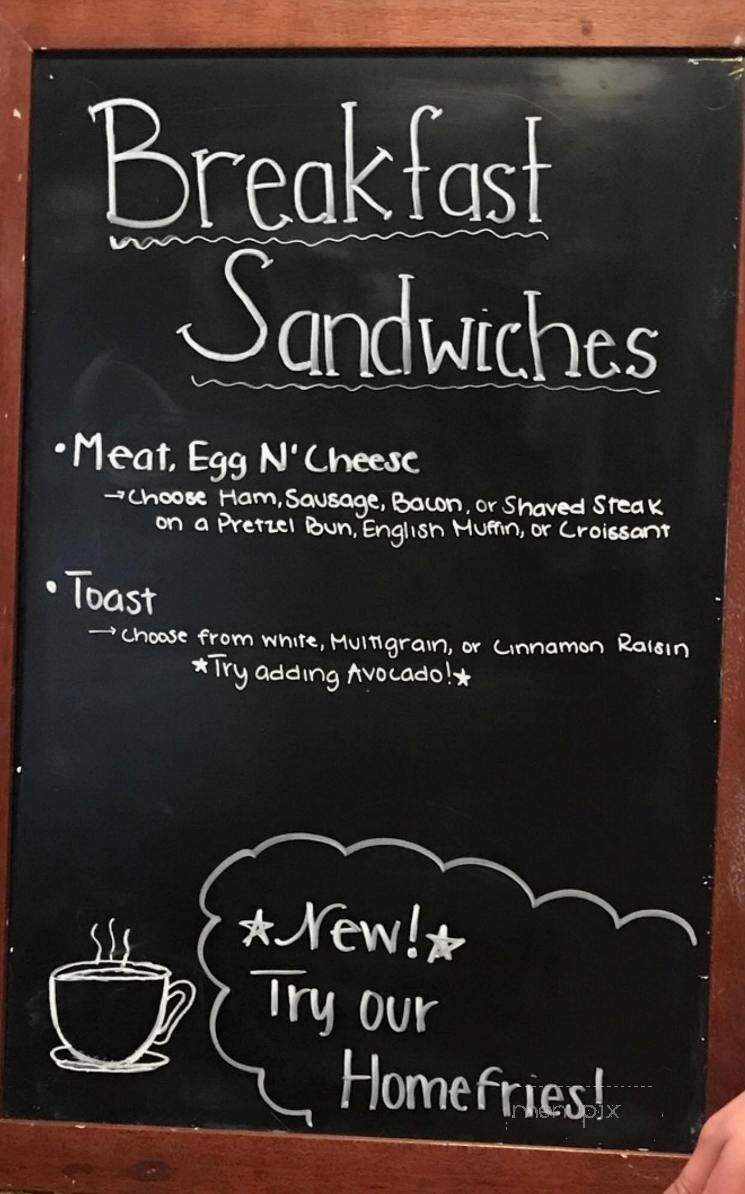 Breakfast
Sandwiches
• Meat, Egg N' Cheese
→ Choose Ham, Sausage, Bacon, or Shaved Steak
on a Pretzel Bun, English Muffin, or Croissant
• Toast
→ Choose from White, Multigrain, or Cinnamon Raisin
★Try adding Avocado!★
★New!★
Try our
Homefries!
menupix